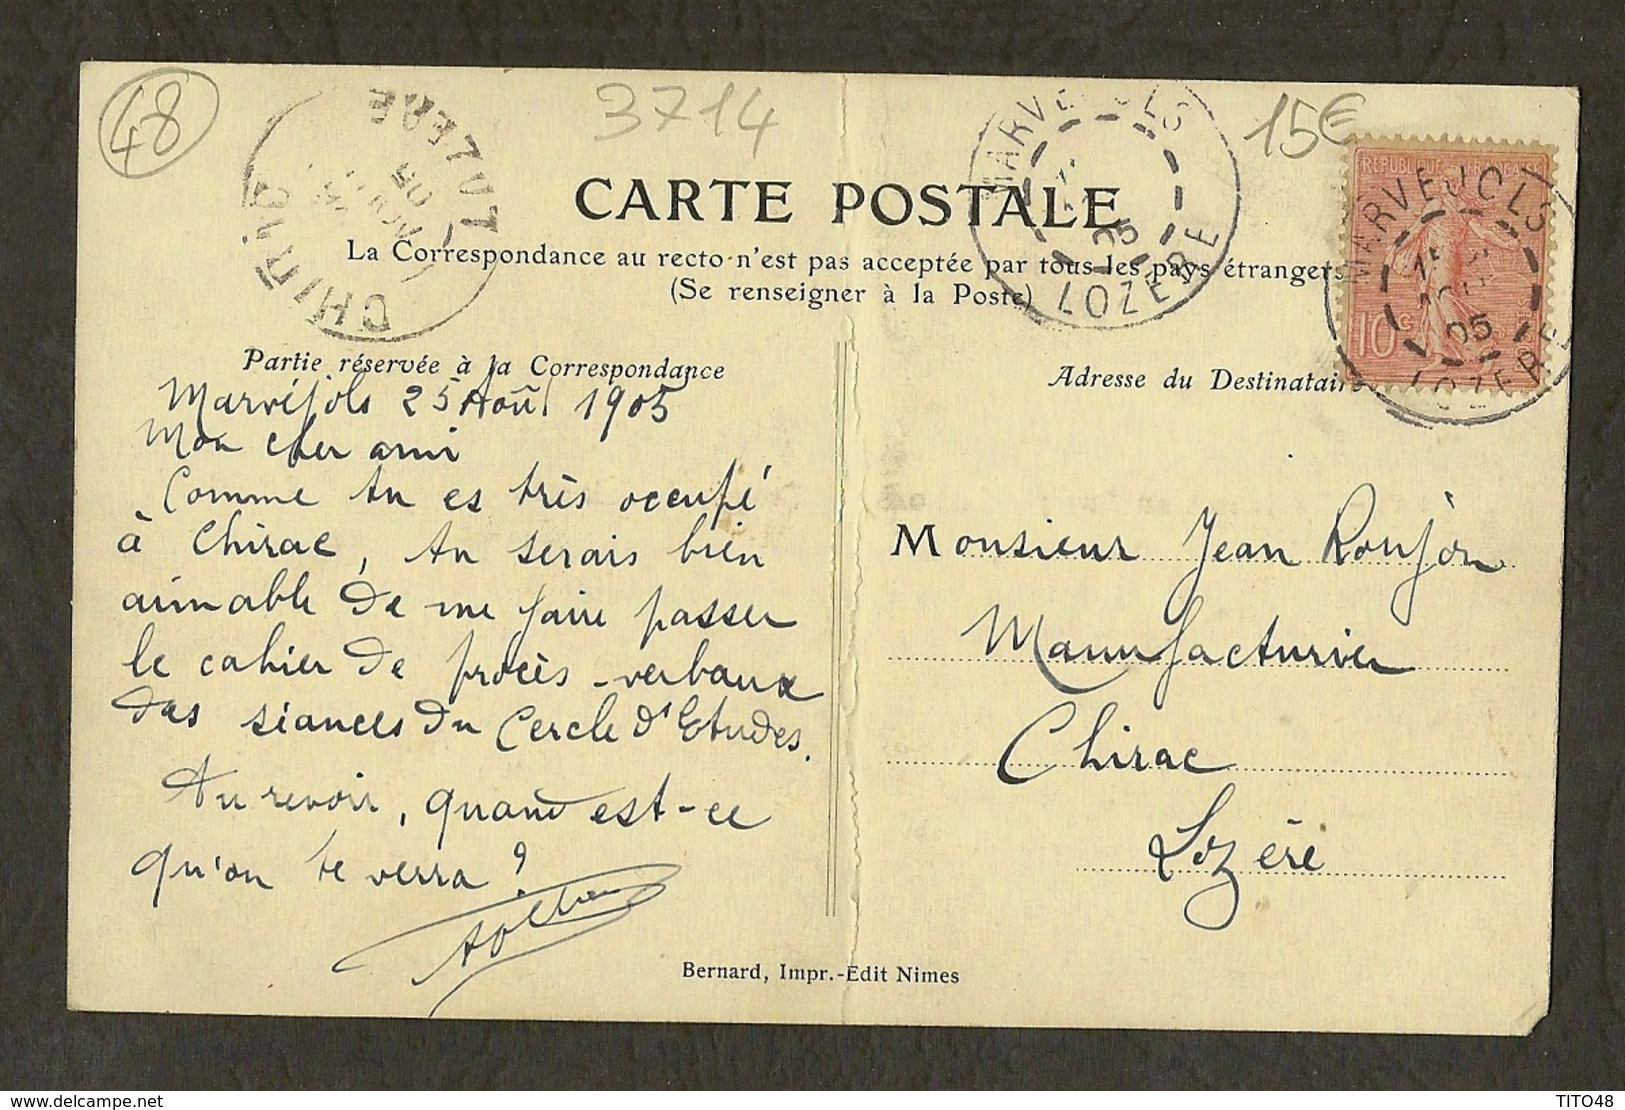 48
3714
15€
CHIRAC
LOZERE
05
MARVEJOLS
05
LOZERE
REPUBLIQUE FRANÇAISE
10c
MARVEJOLS
15
05
LOZERE
CARTE POSTALE
La Correspondance au recto n'est pas acceptée par tous les pays étrangers
(Se renseigner à la Poste)
Partie réservée à la Correspondance
Marvéjols 25 Août 1905
Mon cher ami
Comme tu es très occupé
à Chirac, tu serais bien
aimable de me faire passer
le cahier de procès-verbaux
des séances du Cercle d'Etudes.
Au revoir, quand est-ce
qu'on te verra ?
Bernard, Impr.-Edit Nimes
Adresse du Destinataire
Monsieur Jean Roujon
Manufacturier
Chirac
Lozère
delcampe.net
TITO48